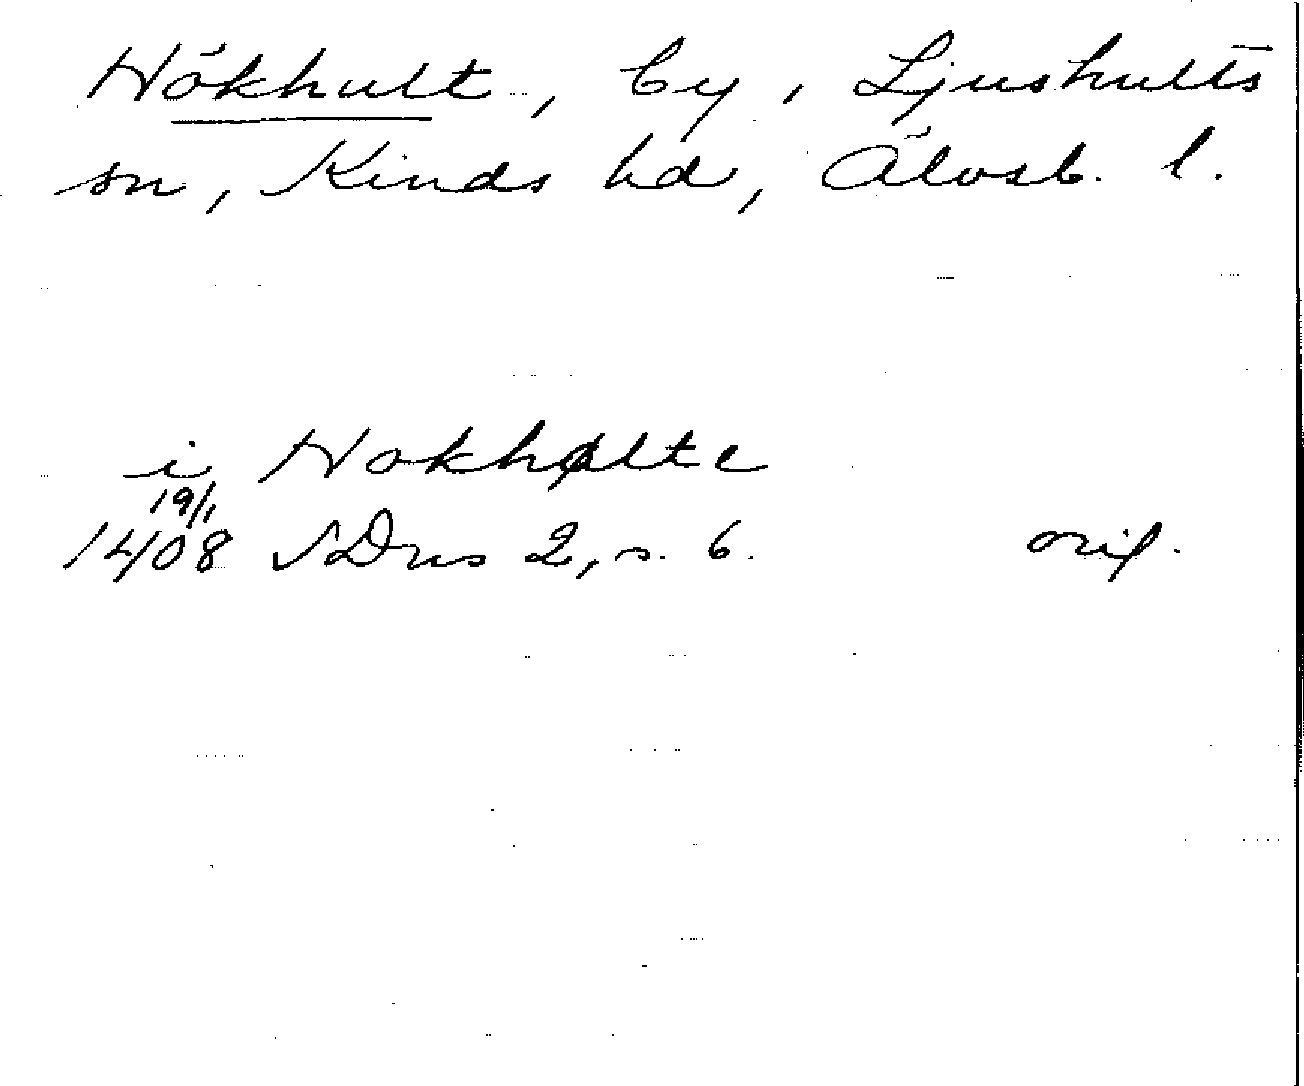 Hökhult, by, Ljushults
sn, Kinds hd, Älvsb. l.
i Hokhølte
19/1
1408 SDns 2, s. 6. orig.